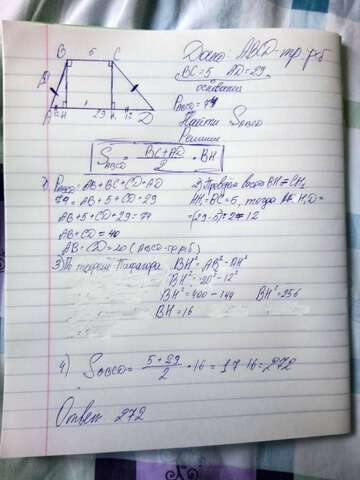 B 5 C
A H 29 H₁ 12 D
Дано: ABCD - тр. р/б
BC=5 AD=29
основания
P ABCD = 74
Найти S ABCD
Решение
S ABCD = BC+AD / 2 · BH
1) P ABCD = AB+BC+CD+AD
74 = AB+5+CD+29
AB+5+CD+29=74
AB+CD=40
AB=CD=20 (ABCD-тр р/б)
2) Проведём высоты BH и CH₁
HH₁=BC=5, тогда AH=H₁D=
=(29-5):2=12
3) По теореме Пифагора BH²=AB²-AH²
BH²=20²-12²
BH²=400-144 BH²=256
BH=16
4) S ABCD = 5+29 / 2 · 16 = 17·16=272
Ответ 272